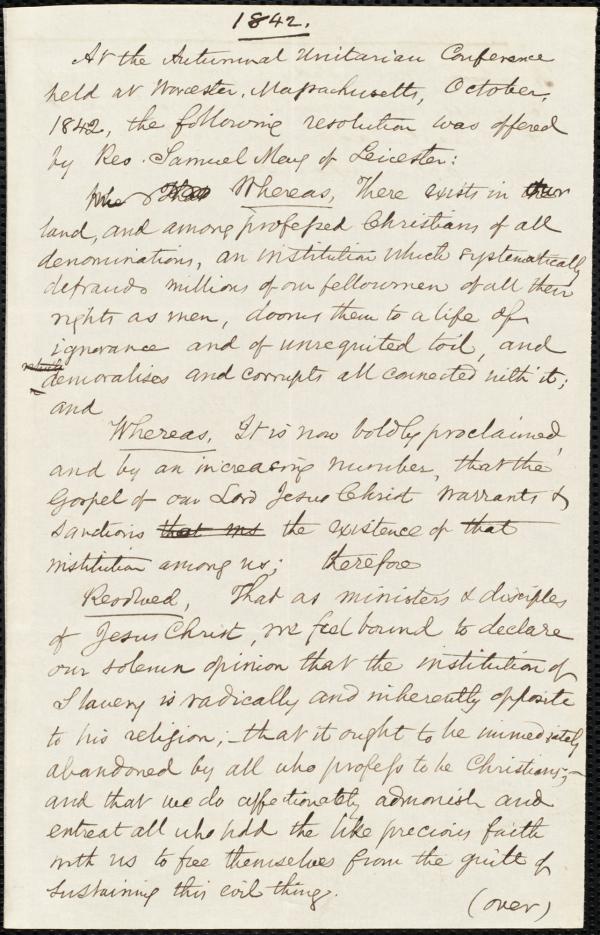 1842.
At the Autumnal Unitarian Conference
held at Worcester, Massachusetts, October,
1842, the following resolution was offered
by Rev. Samuel May of Leicester:
Whereas, There exists in our
land, and among professed Christians of all
denominations, an institution which systematically
defrauds millions of our fellowmen of all their
rights as men, dooms them to a life of
ignorance and of unrequited toil, and
demoralises and corrupts all connected with it;
and
Whereas, It is now boldly proclaimed,
and by an increasing number, that the
Gospel of our Lord Jesus Christ warrants &
sanctions that ins the existence of that
institution among us; therefore
Resolved, That as ministers & disciples
of Jesus Christ, we feel bound to declare
our solemn opinion that the institution of
Slavery is radically and inherently opposite
to his religion; – that it ought to be immediately
abandoned by all who profess to be Christians; –
and that we do affectionately admonish and
entreat all who hold the like precious faith
with us to free themselves from the guilt of
sustaining this evil thing.
(over)